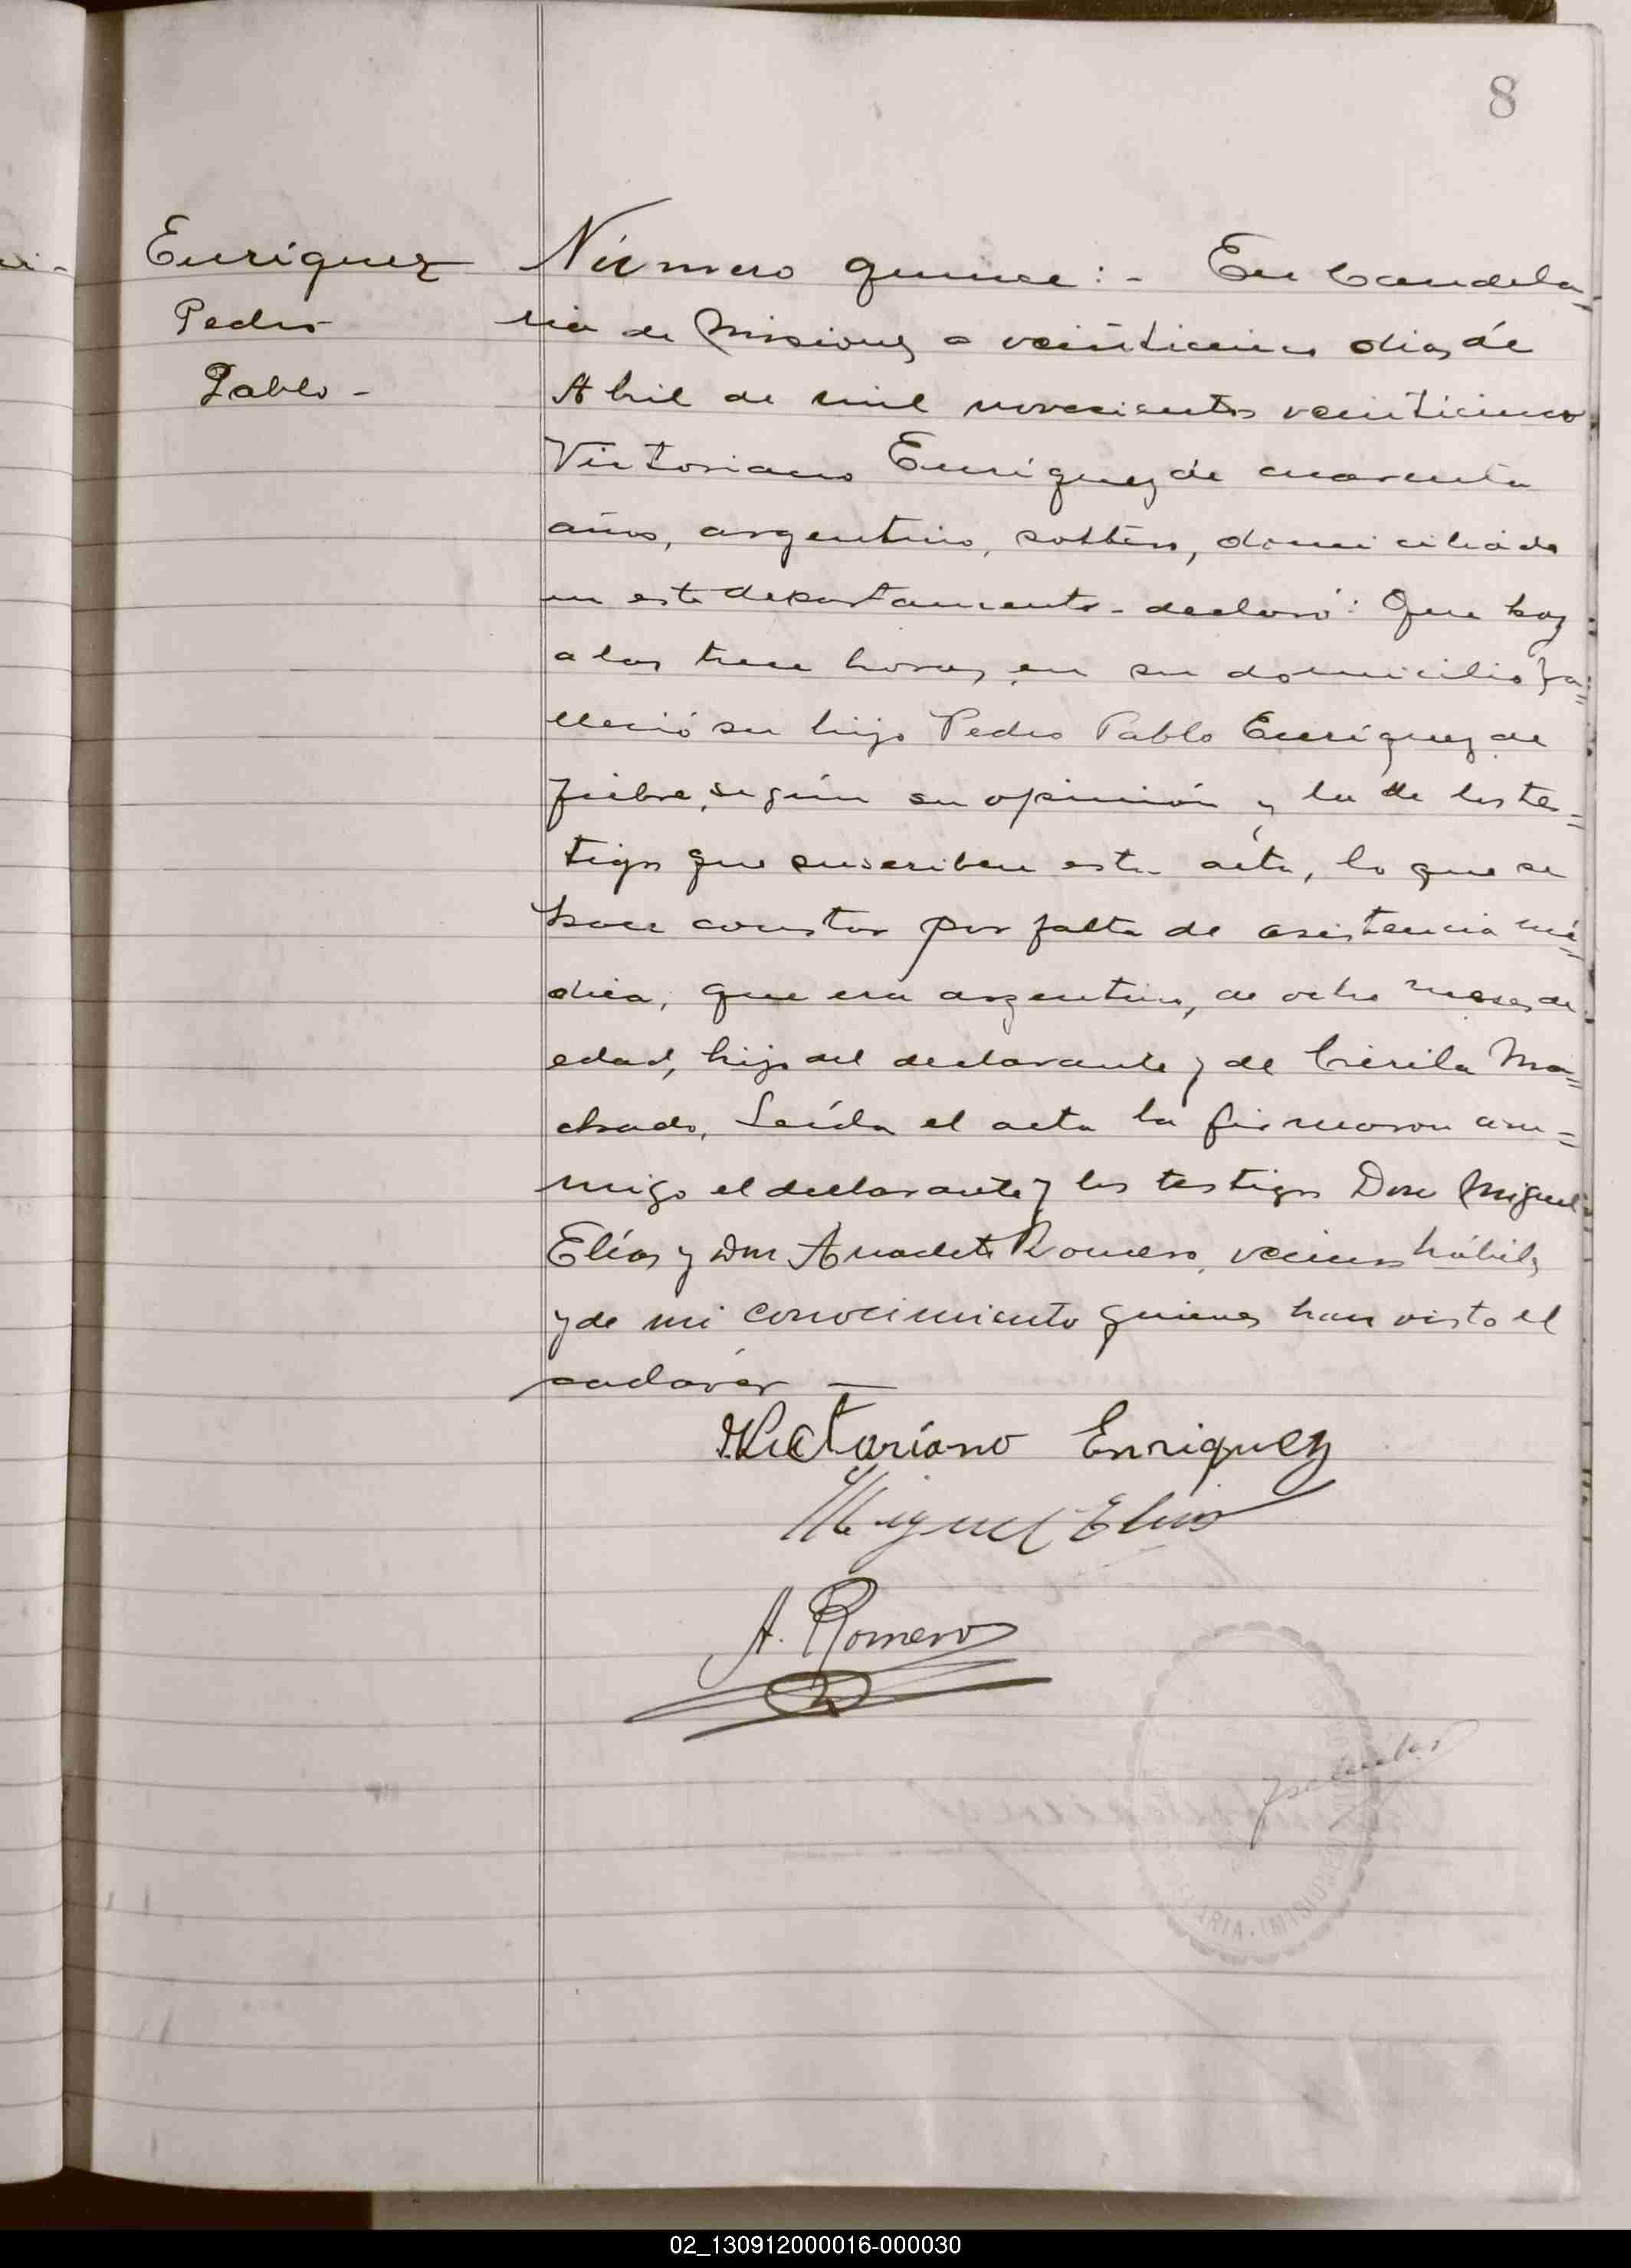 8
Enríquez
Pedro
Pablo -
Número quince: - En Candela=
ria de Misiones a veinticinco dias de
Abril de mil novecientos veinticinco
Victoriano Enríquez de cuarenta
años, argentino, soltero, domiciliado
en este departamento - declaró: Que hoy
a las trece horas en su domicilio fa=
lleció su hijo Pedro Pablo Enríquez de
fiebre, según su opinión y la de los te=
tigos que suscriben esta acta, lo que se
hace constar por falta de asistencia mé=
dica; que era argentino, de ocho meses de
edad, hijo del declarante y de Cirila Ma=
chado, Leída el acta la firmaron con=
migo el declarante y los testigos Don Miguel
Elías y Don Anacleto Romero, vecinos hábiles
y de mi conocimiento quienes han visto el
cadáver —
Victoriano Enriquez
Miguel Elias
A. Romero
ARIA. (MISIONES)
02_130912000016-000030